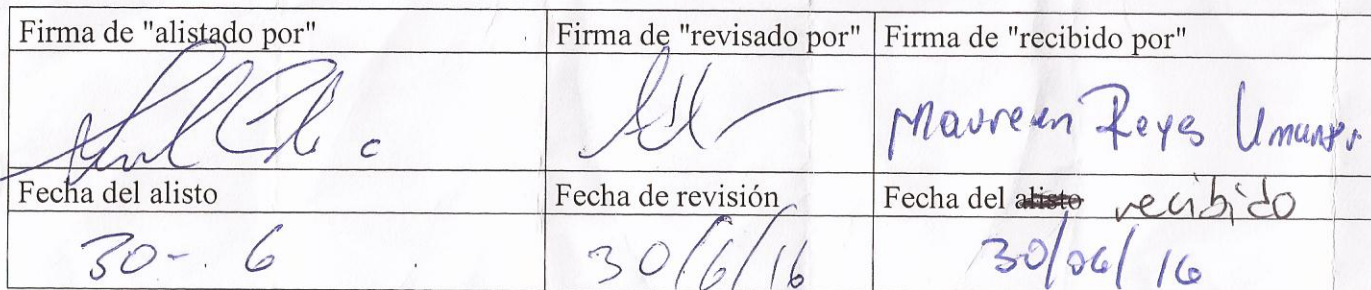 Firma de "alistado por" Firma de "revisado por" Firma de "recibido por"
Maureen Reyes
Fecha del alisto Fecha de revisión Fecha del alisto recibido
30-. 6 30/6/16 30/06/16